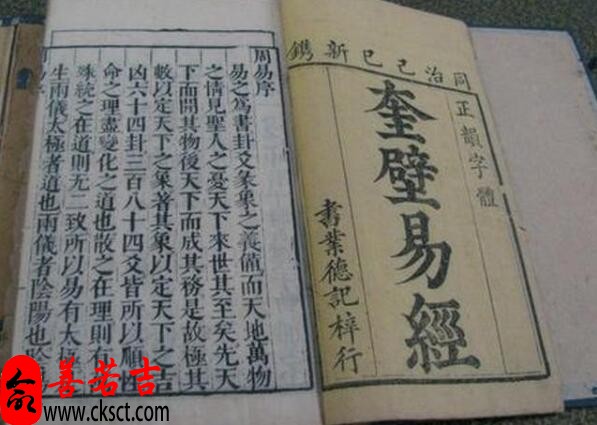 同治己巳新鐫
正韻字體
奎壁易經
書業德記梓行
周易序
易之爲書卦爻彖象之義備而天地萬物
之情見聖人之憂天下來世其至矣先天
下而開其物後天下而成其務是故極其
數以定天下之象著其象以定天下之吉
凶六十四卦三百八十四爻皆所以順性
命之理盡變化之道也散之在理則有
殊統之在道則无二致所以易有太極
生兩儀太極者道也兩儀者陰陽也陰
善若吉
www.cksct.com